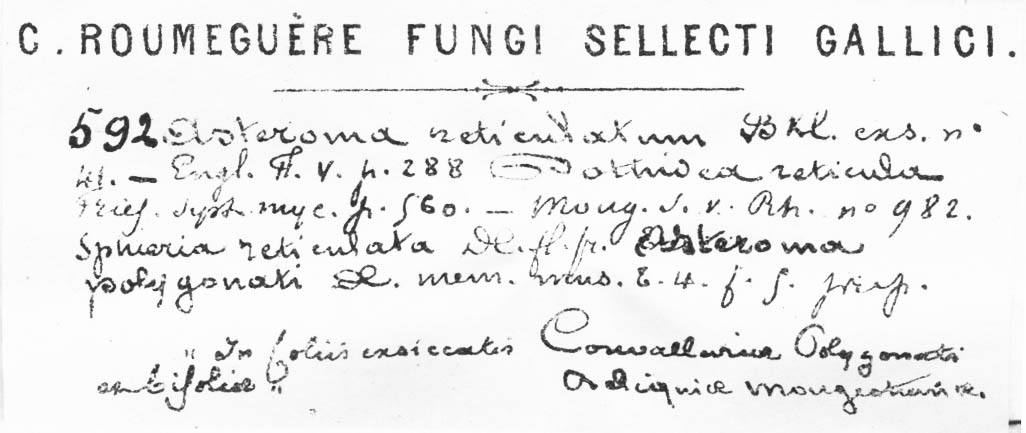 C. ROUMEGUÈRE FUNGI SELLECTI GALLICI.
592 Asteroma reticulatum Bkl. exs. no
41. — Engl. Fl. V. p. 288 Dothidea reticula
Fries. Syst. myc. p. 560. — Moug. S. V. Rh. no 982.
Sphæria reticulata DC. fl. fr. Asteroma
polygonati DC. mem. mus. t. 4. f. 5.
" In foliis exsiccatis Convallariæ Polygonati
" Reliquiæ Mougeotianæ.